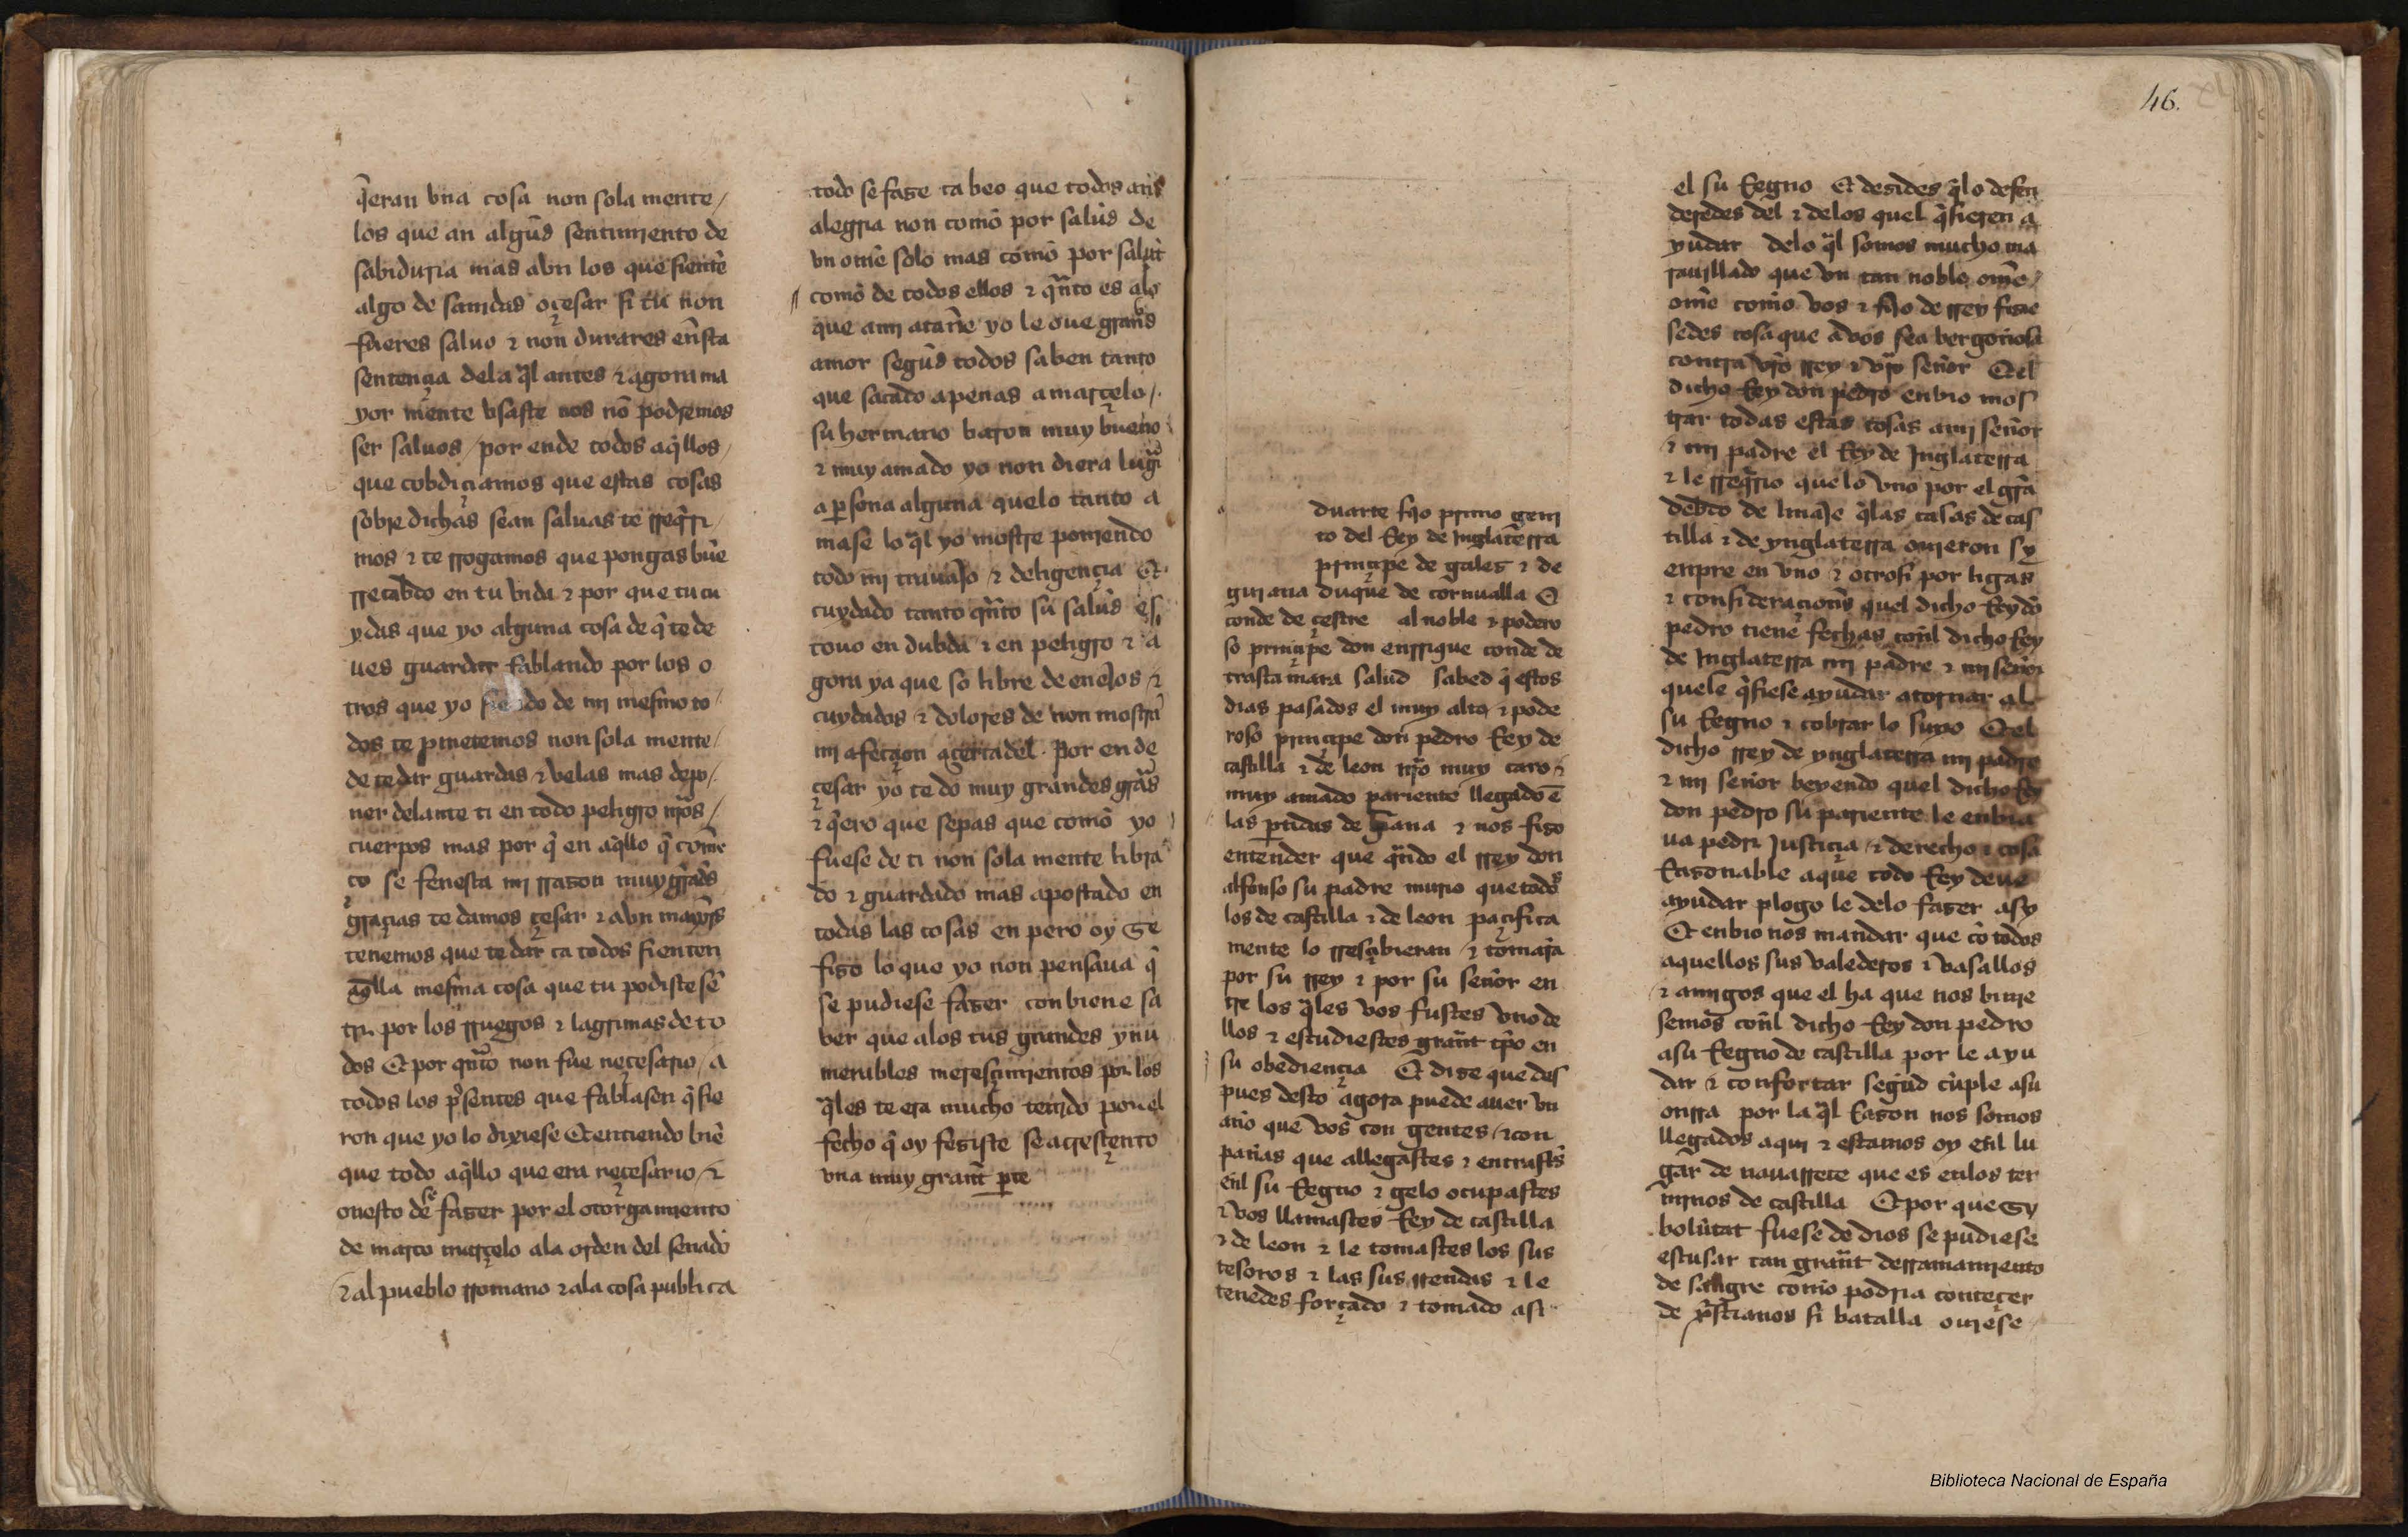 q̃eran vna cosa non sola mente /
los que an algũd sentimiento de
sabiduria mas avn los que siente
algo de sanidas o çesar si tu non
fueres saluo τ non durares eñsta
sentençia dela q̃l antes τ agora ma
yor mente vsaste nos nõ podremos
ser saluos / por ende todos aq̃llos /
que cobdiçiamos que estas cosas
sobre dichas sean saluas te rreq̃ri /
mos τ te rrogamos que pongas buẽ
rrecabdo en tu vida τ por que tu cu
ydas que yo alguna cosa de q̃ te de
ues guardar fablando por los o
tros que yo do de mi mesmo to
dos te prometemos non sola mente /
de te dar guardas τ velas mas de po /
ner delante ti en todo peligro nr̃os /
cuerpos mas por q̃ en aq̃llo q̃ comẽ
ço se fenesca mi rrason muy grãds
graçias te damos çesar τ abn mayor̃s
tenemos que te dar ca todos sienten
aq̃lla mesma cosa que tu podiste sẽ
tir por los rruegos τ lagrimas de to
dos Et por qñto non fue neçesario / a
todos los pr̃sentes que fablasen q̃sie
ron que yo lo dixiese Et entiendo biẽ
que todo aq̃llo que era neçesario / τ
onesto de se faser por el otorgamiento
de marco marçelo ala orden del senado
τ al pueblo rromano τ ala cosa publica
todo se fase ca beo que todos an
alegria non comõ por salũd de
vn omẽ solo mas comõ por salũt
comõ de todos ellos τ qñto es alo
que a mi atañe yo le oue grand
amor segũd todos saben tanto
que sacado apenas a marçelo /
su hermano baron muy bueno
τ muy amado yo non diera lugar
a ꝑsona alguna que lo tanto a
mase lo q̃l yo mostre poniendo
todo mi trauajo τ deligençia Et
cuydado tanto qñto su salũd es
touo en dubda τ en peligro τ a
gora ya que so libre de enojos τ
cuydados τ dolores de non mostrar
mi afecçion açerca del . Por ende
çesar yo te do muy grandes grãs
τ q̃ero que sepas que comõ yo
fuese de ti non sola mente libra
do τ guardado mas apostado en
todas las cosas en pero oy se
fiso lo que yo non pensaua q̃
se pudiese faser conbiene sa
ber que alos tus grandes ynu
merables meresçimientos por los
q̃les te era mucho tenido por el
fecho q̃ oy fesiste se acresçento
vna muy grañt ꝑte
46.
duarte fijo primo geni
to del Rey de Inglaterra
prinçipe de gales τ de
guiana duque de cornualla E
conde de çestre al noble τ podero
so prinçipe don enrrique conde de
trastamara salud sabed q̃ estos
dias pasados el muy alto τ pode
roso prinçipe don pedro Rey de
castilla τ de leon nr̃o muy caro τ
muy amado pariente llegado ẽ
las ꝑtidas de gujana τ nos fiso
entender que quãdo el rrey don
alfonso su padre murio que todos
los de castilla τ de leon paçifica
mente lo rresçibieran τ tomarã
por su rrey τ por su señor en
tre los q̃les vos fustes vno de
llos τ estudiestes grañt tp̃o en
su obediençia Et dise que des
pues desto agora puede auer vn
año que vos con gentes / τ con
pañas que allegastes τ entrastes
eñl su Regno τ gelo ocupastes
τ vos llamastes Rey de castilla
τ de leon τ le tomastes los sus
tesoros τ las sus rrendas τ le
tenedes forçado τ tomado asi
el su Regno Et desides q̃lo defen
deredes del τ delos quel q̃sieren a
yudar delo q̃l somos mucho ma
rauillado que vn tan noble omẽ /
omẽ como vos τ fijo de rrey fisie
sedes cosa que a vos sea bergoñosa
contra vr̃o rrey τ vr̃o señor Et el
dicho Rey don pedro enbio mos
trar todas estas cosas a mi señor
τ mi padre el Rey de Inglaterra
τ le rreq̃rio que lo vno por el grã
debdo de linaje q̃las casas de cas
tilla τ de ynglaterra ouieron sy
enpre en vno τ otrosi por ligas
τ confideraçiones quel dicho Rey dõ
pedro tiene fechas coñl dicho Rey
de Inglaterra mi padre τ mi señor
quele q̃siese ayudar a tornar al
su Regno τ cobrar lo suyo Et el
dicho rrey de ynglaterra mi padre
τ mi señor beyendo quel dicho Rey
don pedro su pariente le enbia
ua pedir Justiçia τ derecho τ cosa
Rasonable aque todo Rey deue
ayudar plogo le delo faser asy
Et enbio nos mandar que cõ todos
aquellos sus valederos τ vasallos
τ amigos que el ha que nos binie
semos coñl dicho Rey don pedro
a su Regno de castilla por le ayu
dar τ confortar segũd cũple a su
onrra por la q̃l Rason nos somos
llegados aqui τ estamos oy eñl lu
gar de nauarrete que es enlos ter
minos de castilla Et por que sy
bolũtat fuese de dios se pudiese
escusar tan grañt derramamiento
de sangre como podria conteçer
de xp̃stianos si batalla ouiese
Biblioteca Nacional de España